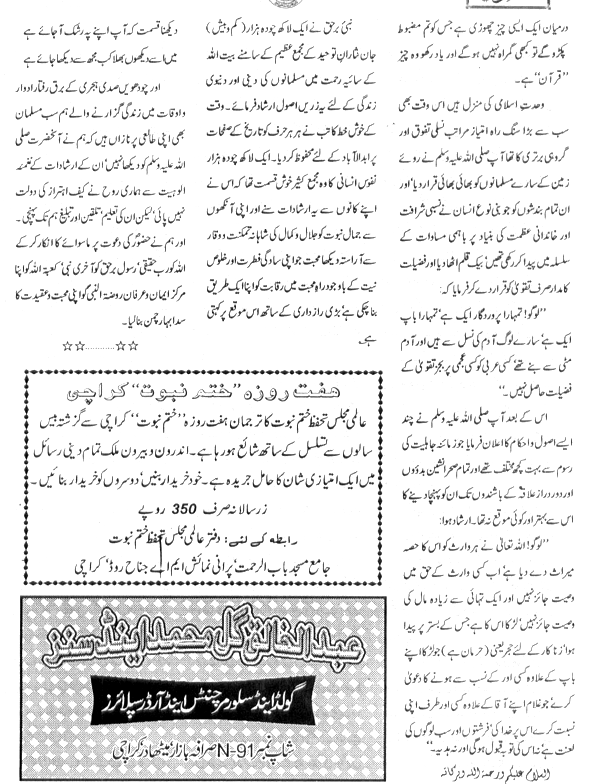 درمیان ایک ایسی چیز چھوڑی ہے جس کو تم مضبوط
پکڑو گے تو کبھی گمراہ نہیں ہوگے اور یاد رکھو وہ چیز
”قرآن“ ہے۔
وحدت اسلامی کی منزل میں اس وقت بھی
سب سے بڑا سنگ راہ امتیاز مراتب نسلی تفوق اور
گروہی برتری کا تھا آپ صلی اللہ علیہ وسلم نے روئے
زمین کے سارے مسلمانوں کو بھائی بھائی قرار دیا اور
ان تمام بندشوں کو جو بنی نوع انسان نے نسبی شرافت
اور خاندانی عظمت کی بنیاد پر باہمی مساوات کے
سلسلہ میں پیدا کر رکھی تھیں‘ یک قلم اٹھا دیا اور فضیلت
کا مدار صرف تقویٰ کو قرار دے کر فرمایا کہ:
”لوگو! تمہارا پروردگار ایک ہے‘ تمہارا باپ
ایک ہے‘ سارے لوگ آدم کی نسل سے ہیں اور آدم
مٹی سے بنے تھے‘ کسی عربی کو کسی عجمی پر بجز تقویٰ کے
فضیلت حاصل نہیں۔“
اس کے بعد آپ صلی اللہ علیہ وسلم نے چند
ایسے اصول و احکام کا اعلان فرمایا جو زمانہ جاہلیت کی
رسوم سے بہت کچھ مختلف تھے اور تمام صحرا نشین بدوؤں
اور دور دراز علاقہ کے باشندوں تک ان کو پہنچا دینے کا
اس سے بہتر اور کوئی موقع نہ تھا۔ ارشاد ہوا:
”لوگو! اللہ تعالیٰ نے ہر وارث کو اس کا حصہ
میراث دے دیا ہے‘ اب کسی وارث کے حق میں
وصیت جائز نہیں اور ایک تہائی سے زیادہ مال کی
وصیت جائز نہیں‘ لڑکا اس کا ہے جس کے بستر پر پیدا
ہوا‘ زنا کار کے لئے حجر یعنی (حرمان ہے) جو لڑکا اپنے
باپ کے علاوہ کسی اور کے نسب سے ہونے کا دعویٰ
کرے‘ جو غلام اپنے آقا کے علاوہ کسی اور طرف اپنی
نسبت کرے اس پر خدا کی‘ فرشتوں اور سب لوگوں کی
لعنت ہے نہ اس کی توبہ قبول ہوگی اور نہ ہدیہ۔“
السلام علیکم ورحمۃ اللہ وبرکاتہ
نبیٔ برحق نے ایک لاکھ چودہ ہزار (کم و بیش)
جاں نثاران توحید کے مجمع عظیم کے سامنے بیت اللہ
کے سائیہ رحمت میں مسلمانوں کی دینی اور دنیوی
زندگی کے لئے یہ زریں اصول ارشاد فرمائے۔ وقت
کے خوش خط کاتب نے ہر ہر حرف کو تاریخ کے صفحات
پر ابدالآباد کے لئے محفوظ کردیا۔ ایک لاکھ چودہ ہزار
نفوس انسانی کا وہ مجمع کثیر خوش قسمت تھا کہ اس نے
اپنے کانوں سے یہ ارشادات سنے اور اپنی آنکھوں
سے جمال نبوت کو جلال و کمال کی شاہانہ تمکنت و وقار
سے آراستہ دیکھا‘ محبت جو اپنی سادگیٔ فطرت اور خلوص
نیت کے باوجود راہ محبت میں رقابت کو اپنا ایک طریق
بنا چکی ہے‘ بڑی رازداری کے ساتھ اس موقع پر کہتی
ہے
دیکھنا قسمت کہ آپ اپنے پہ رشک آجائے ہے
میں اسے دیکھوں بھلا کب مجھ سے دیکھا جائے ہے
اور چودھویں صدی ہجری کے برق رفتار ادوار
و اوقات میں زندگی گزارنے والے ہم سب مسلمان
بھی اپنی طالعی پر نازاں ہیں کہ ہم نے آنحضرت صلی
اللہ علیہ وسلم کو دیکھا نہیں‘ ان کے ارشادات کے نغمہ
الوہیت سے ہماری روح نے کیف اہتزاز کی دولت
نہیں پائی‘ لیکن ان کی تعلیم‘ تلقین اور تبلیغ ہم تک پہنچی۔
اور ہم نے حضورؐ کی دعوت پر ماسوائے کا انکار کر کے
اللہ کو رب حقیقی‘ رسول برحق کو آخری نبی‘ کعبۃ اللہ کو اپنا
مرکز ایمان و عرفان‘ روضۃ النبی کو اپنی محبت و عقیدت کا
سدا بہار چمن بنا لیا۔
☆☆............☆☆
ہفت روزہ ”ختم نبوت“ کراچی
عالمی مجلس تحفظ ختم نبوت کا ترجمان ہفت روزہ ”ختم نبوت“ کراچی سے گزشتہ بیس
سالوں سے تسلسل کے ساتھ شائع ہو رہا ہے۔ اندرون و بیرون ملک تمام دینی رسائل
میں ایک امتیازی شان کا حامل جریدہ ہے۔ خود خریدار بنیں‘ دوسروں کو خریدار بنائیں۔
زر سالانہ صرف 350 روپے
رابطہ کے لئے: دفتر عالمی مجلس تحفظ ختم نبوت
جامع مسجد باب الرحمت‘ پرانی نمائش ایم اے جناح روڈ‘ کراچی
عبدالخالق گل محمد اینڈ سنز
گولڈ اینڈ سلور مرچنٹس اینڈ آرڈر سپلائرز
شاپ نمبر N-91 صرافہ بازار میٹھادر کراچی